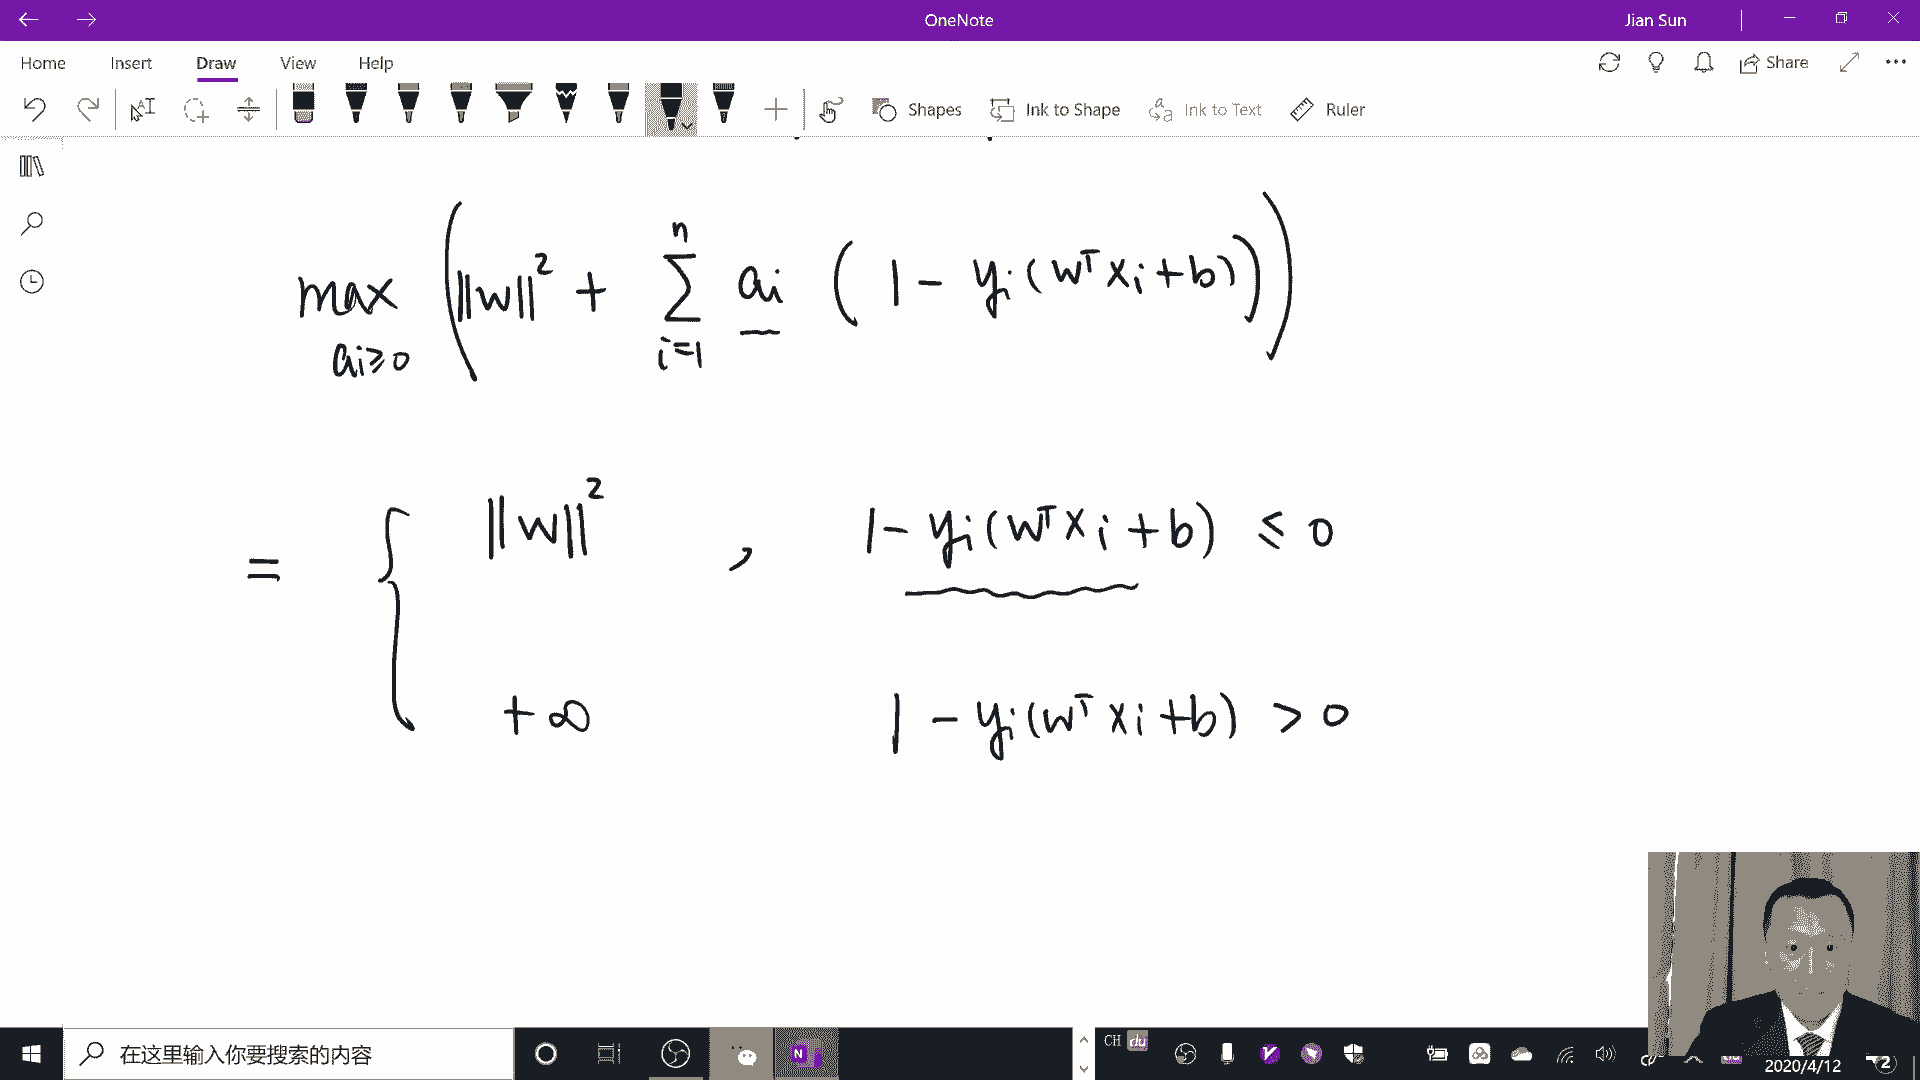 OneNote
Jian Sun
Home Insert Draw View Help
Share
Shapes Ink to Shape Ink to Text Ruler
max (||w||² + Σ ai (1 - yi(wᵀxi+b)))
n
ai≥0
i=1
= { ||w||² , 1 - yi(wᵀxi+b) ≤ 0
+∞ 1 - yi(wᵀxi+b) > 0
在这里输入你要搜索的内容
N
CH du
2020/4/12
2